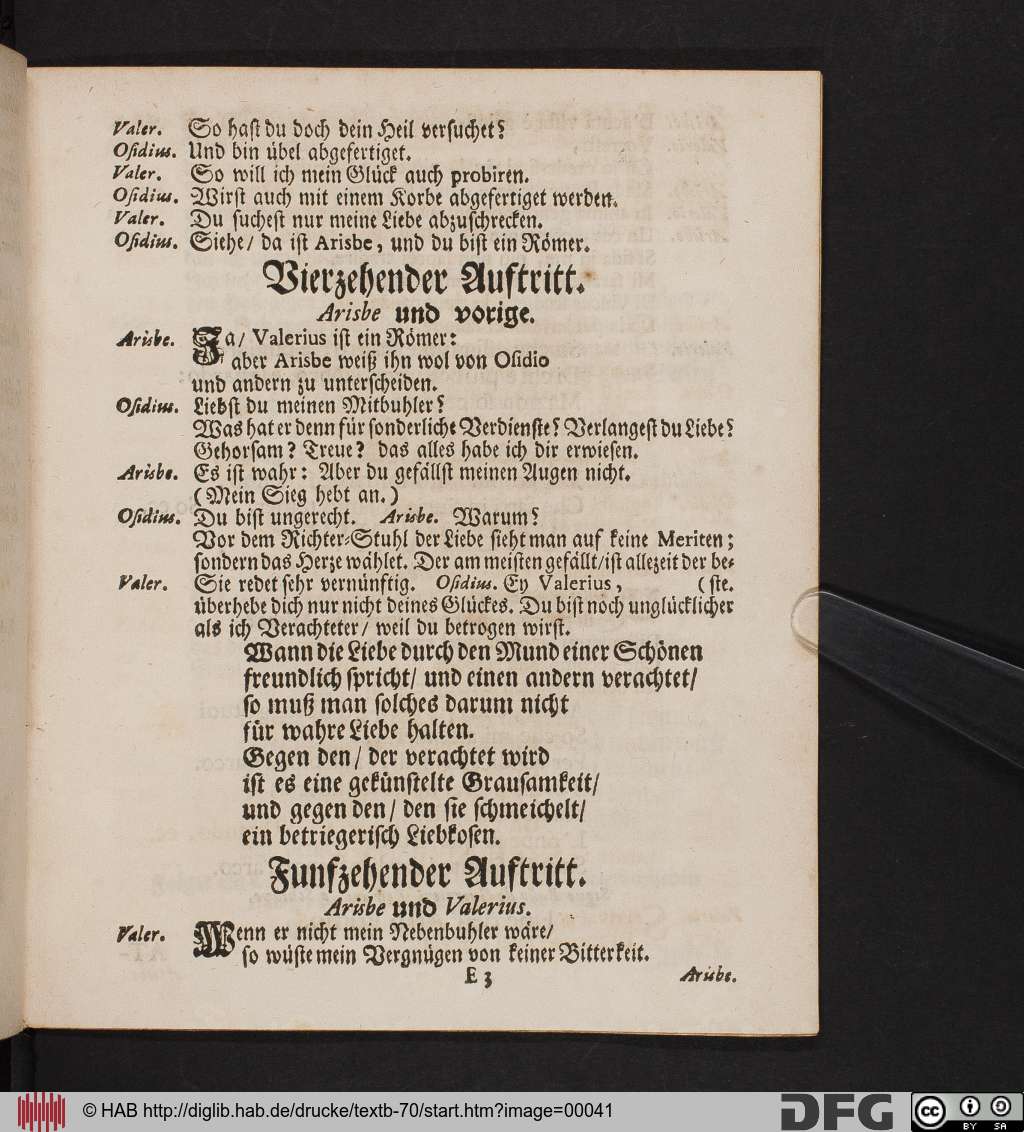 Valer. So hast du doch dein Heil versuchet?
Osidius. Und bin übel abgefertiget.
Valer. So will ich mein Glück auch probiren.
Osidius. Wirst auch mit einem Korbe abgefertiget werden.
Valer. Du suchest nur meine Liebe abzuschrecken.
Osidius. Siehe/ da ist Arisbe, und du bist ein Römer.
Vierzehender Auftritt.
Arisbe und vorige.
Arisbe. Ja/ Valerius ist ein Römer:
aber Arisbe weiß ihn wol von Osidio
und andern zu unterscheiden.
Osidius. Liebst du meinen Mitbuhler?
Was hat er denn für sonderliche Verdienste? Verlangest du Liebe?
Gehorsam? Treue? das alles habe ich dir erwiesen.
Arisbe. Es ist wahr: Aber du gefällst meinen Augen nicht.
(Mein Sieg hebt an.)
Osidius. Du bist ungerecht. Arisbe. Warum?
Vor dem Richter-Stuhl der Liebe sieht man auf keine Meriten;
sondern das Herze wählet. Der am meisten gefällt/ ist allezeit der be-
Valer. Sie redet sehr vernünftig. Osidius. Ey Valerius, (ste.
überhebe dich nur nicht deines Glückes. Du bist noch unglücklicher
als ich Verachteter/ weil du betrogen wirst.
Wann die Liebe durch den Mund einer Schönen
freundlich spricht/ und einen andern verachtet/
so muß man solches darum nicht
für wahre Liebe halten.
Gegen den/ der verachtet wird
ist es eine gekünstelte Grausamkeit/
und gegen den/ den sie schmeichelt/
ein betriegerisch Liebkosen.
Funfzehender Auftritt.
Arisbe und Valerius.
Valer. Wenn er nicht mein Nebenbuhler wäre/
so wüste mein Vergnügen von keiner Bitterkeit.
E 3 Arisbe.
© HAB http://diglib.hab.de/drucke/textb-70/start.htm?image=00041
DFG
cc BY SA